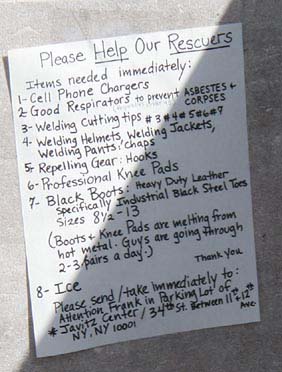 Please Help Our Rescuers
Items needed immediately:
1- Cell Phone Chargers
2- Good Respirators to prevent ASBESTES +
CORPSES
3- Welding Cutting tips #3#4#5#6#7
4- Welding Helmets, Welding Jackets,
Welding Pants: chaps
5- Repelling Gear: Hooks
6- Professional Knee Pads
7- Black Boots: Heavy Duty Leather
specifically Industrial Black Steel Toes
sizes 8½ - 13
(Boots + Knee Pads are melting from
hot metal. Guys are going through
2-3 pairs a day.)
Thank You
8- Ice
Please send / take Immediately to:
Attention Frank in Parking Lot of
* Javitz Center / 34th St. Between 11th + 12th
Ave.
NY, NY 10001